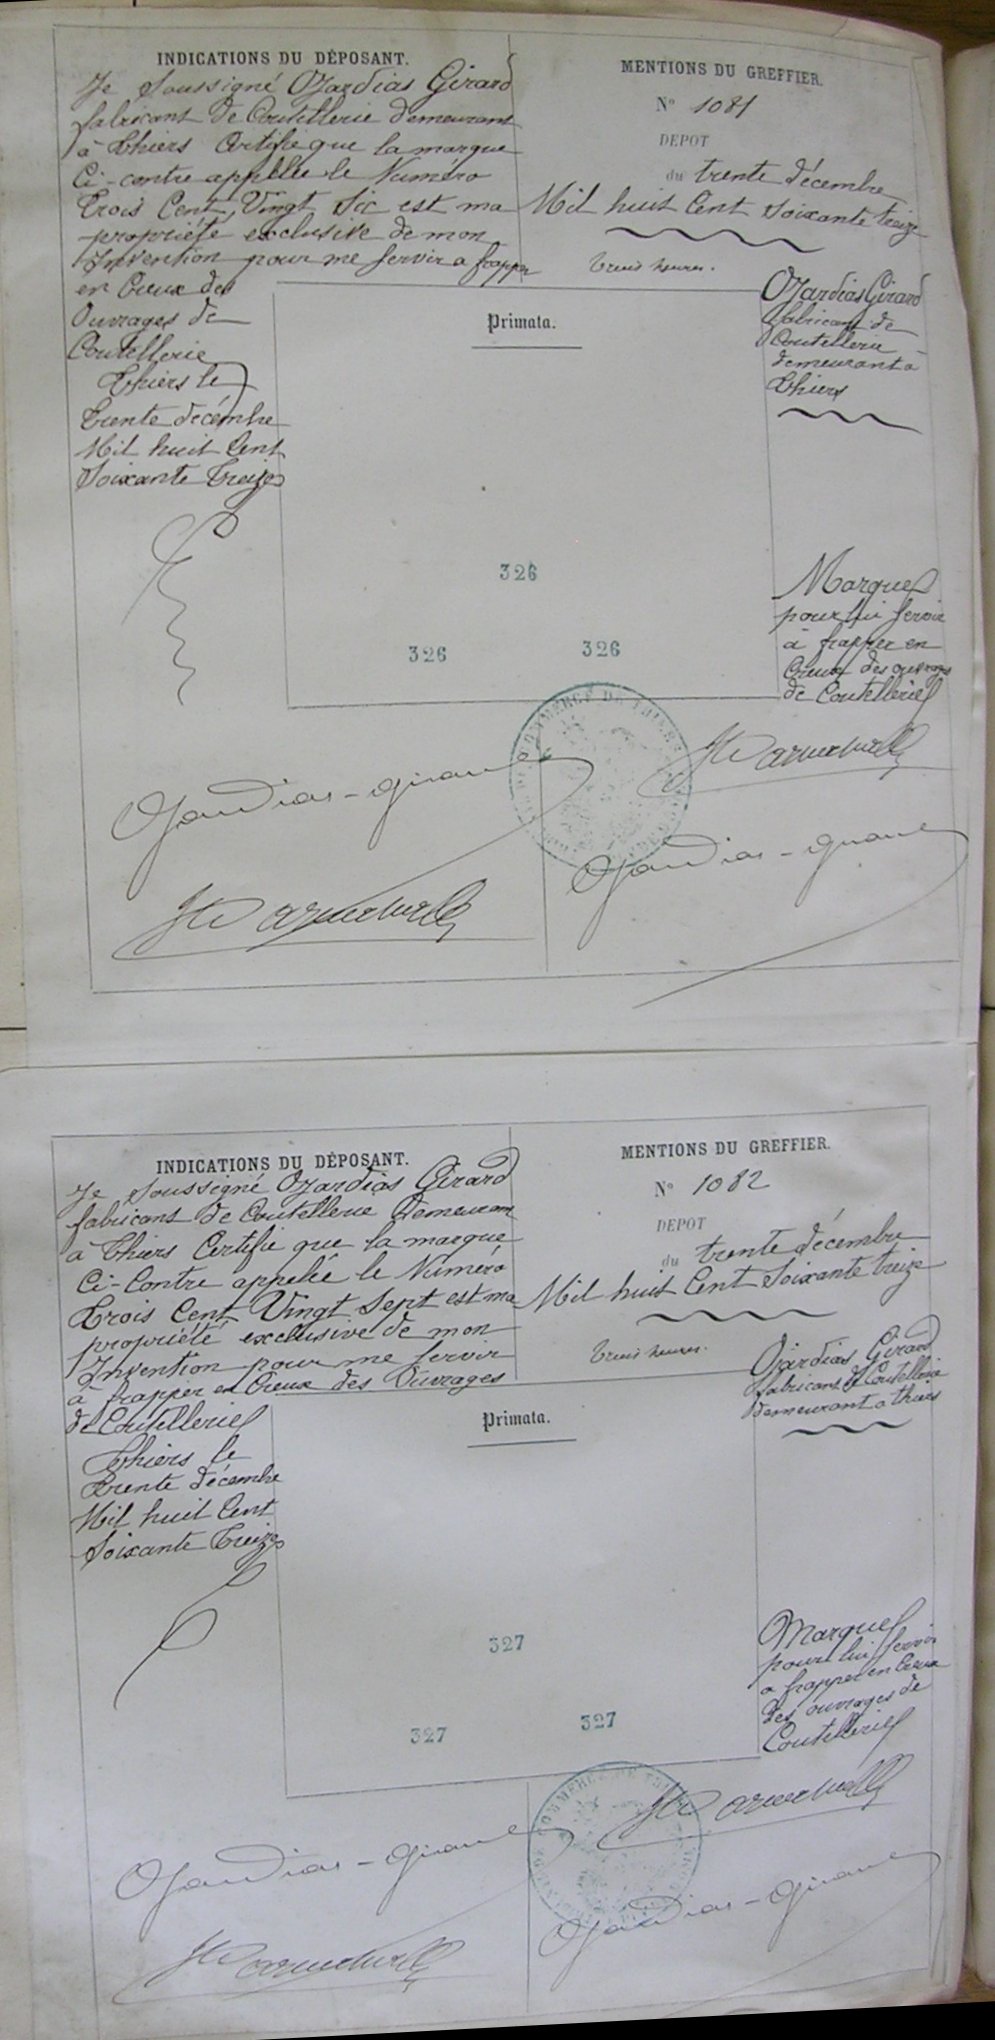 INDICATIONS DU DÉPOSANT.
Je Soussigné Ojardias Girard
fabricant de Coutellerie demeurant
à Thiers Certifie que la marque
Ci-contre appellée le Numéro
Trois Cent Vingt Six est ma
propriété exclusive de mon
Invention pour me servir a frapper
en Creux des
Ouvrages de
Coutellerie
Thiers le
Trente décembre
Mil huit Cent
Soixante Treize
MENTIONS DU GREFFIER.
N° 1081
DEPOT
du trente décembre
Mil huit Cent Soixante treize
trois heures.
Primata.
Ojardias Girard
fabricant de
Coutellerie
demeurant a
Thiers
326
326 326
Marque
pour lui servir
à frapper en
Creux des ouvrages
de Coutellerie
COMMERCE DE THIERS
Ojardias-Girard
Ojardias-Girard
INDICATIONS DU DÉPOSANT.
Je Soussigné Ojardias Girard
fabricant de Coutellerie Demeurant
à Thiers Certifie que la marque
Ci-Contre appelée le Numéro
Trois Cent Vingt Sept est ma
propriété exclusive de mon
Invention pour me servir
à frapper en Creux des Ouvrages
de Coutellerie
Thiers le
Trente décembre
Mil huit Cent
Soixante Treize
MENTIONS DU GREFFIER.
N° 1082
DEPOT
du trente décembre
Mil huit Cent Soixante treize
trois heures.
Primata.
Ojardias Girard
fabricant de Coutellerie
demeurant a thiers
327
327 327
Marque
pour lui servir
a frapper en Creux
des ouvrages de
Coutellerie
COMMERCE DE THIERS
Ojardias-Girard
Ojardias-Girard